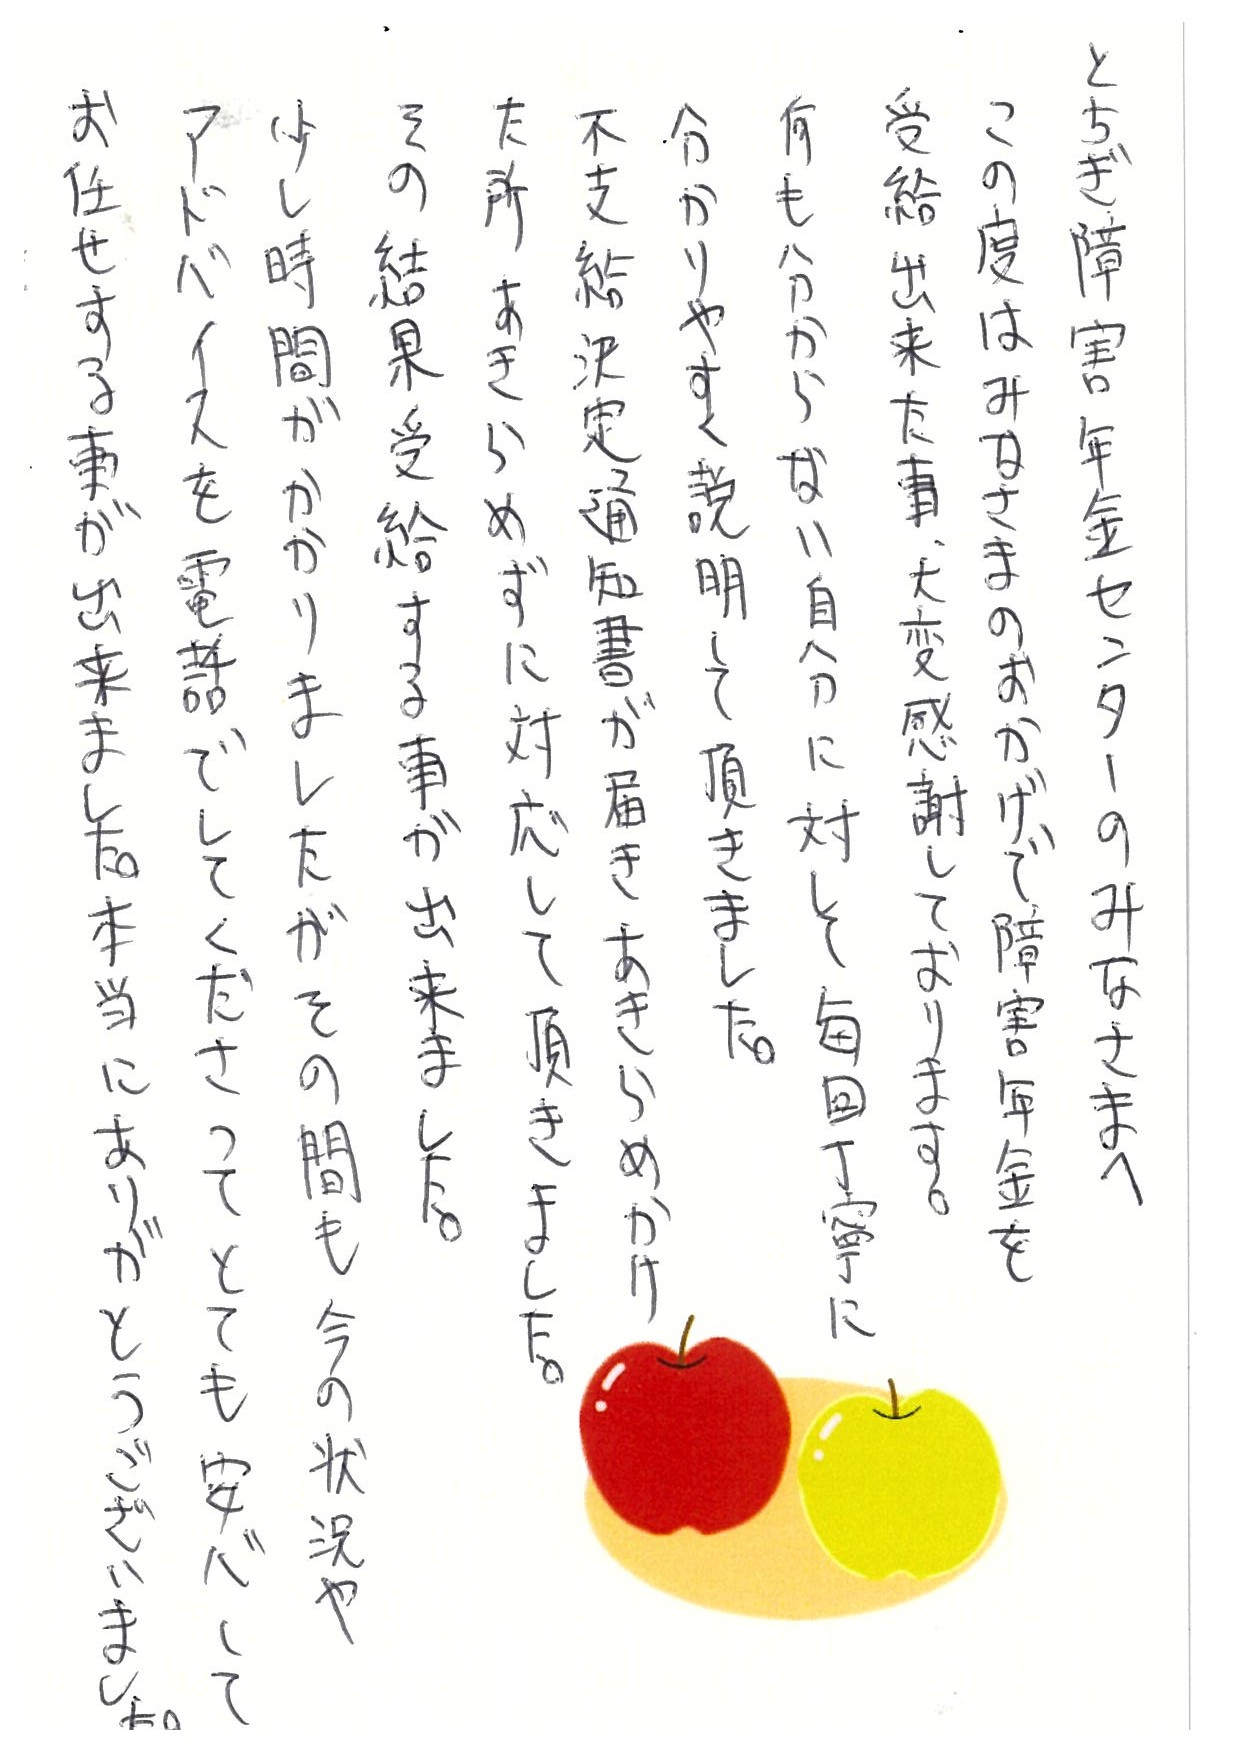 とちぎ障害年金センターのみなさまへ
この度はみなさまのおかげで障害年金を
受給出来た事、大変感謝しております。
何も分からない自分に対して毎回丁寧に
分かりやすく説明して頂きました。
不支給決定通知書が届きあきらめかけ
た所あきらめずに対応して頂きました。
その結果受給する事が出来ました。
少し時間がかかりましたがその間も今の状況や
アドバイスを電話でしてくださってとても安心して
お任せする事が出来ました。本当にありがとうございました。